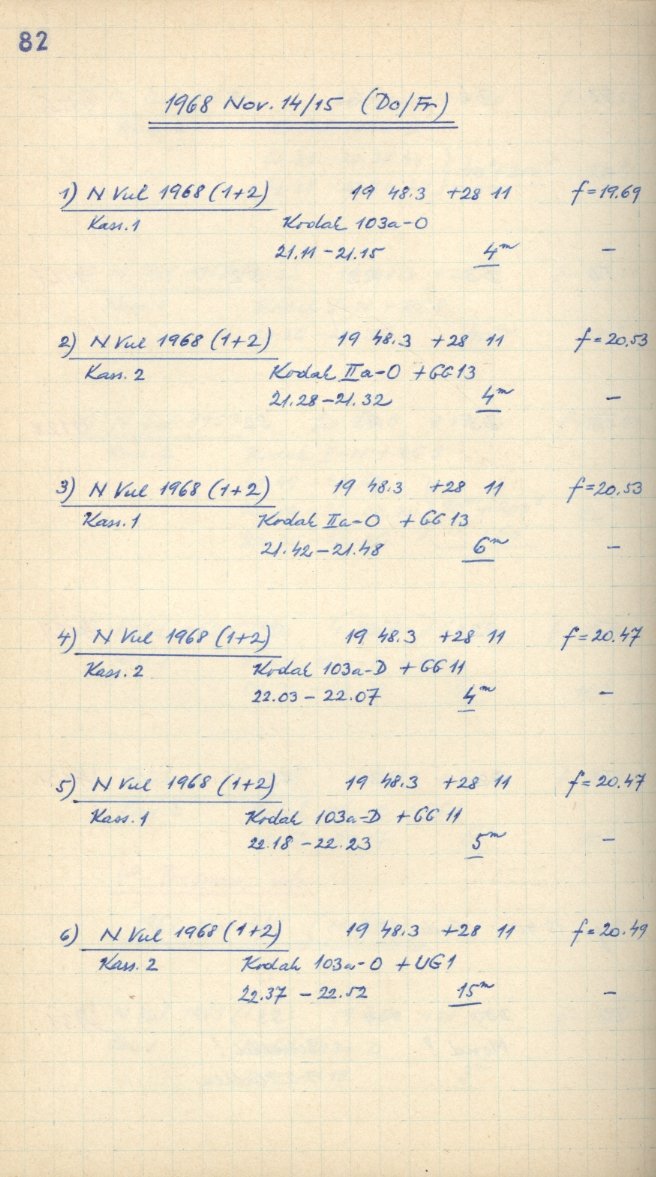 82
1968 Nov. 14/15 (Do/Fr)
1) N Vul 1968 (1+2) 19 48.3 +28 11 f=19.69
Kass. 1 Kodak 103a-O
21.11-21.15 4m –
2) N Vul 1968 (1+2) 19 48.3 +28 11 f=20.53
Kass. 2 Kodak IIa-O +GG13
21.28-21.32 4m –
3) N Vul 1968 (1+2) 19 48.3 +28 11 f=20.53
Kass. 1 Kodak IIa-O +GG13
21.42-21.48 6m –
4) N Vul 1968 (1+2) 19 48.3 +28 11 f=20.47
Kass. 2 Kodak 103a-D +GG11
22.03-22.07 4m –
5) N Vul 1968 (1+2) 19 48.3 +28 11 f=20.47
Kass. 1 Kodak 103a-D +GG11
22.18-22.23 5m –
6) N Vul 1968 (1+2) 19 48.3 +28 11 f=20.49
Kass. 2 Kodak 103a-O +UG1
22.37-22.52 15m –